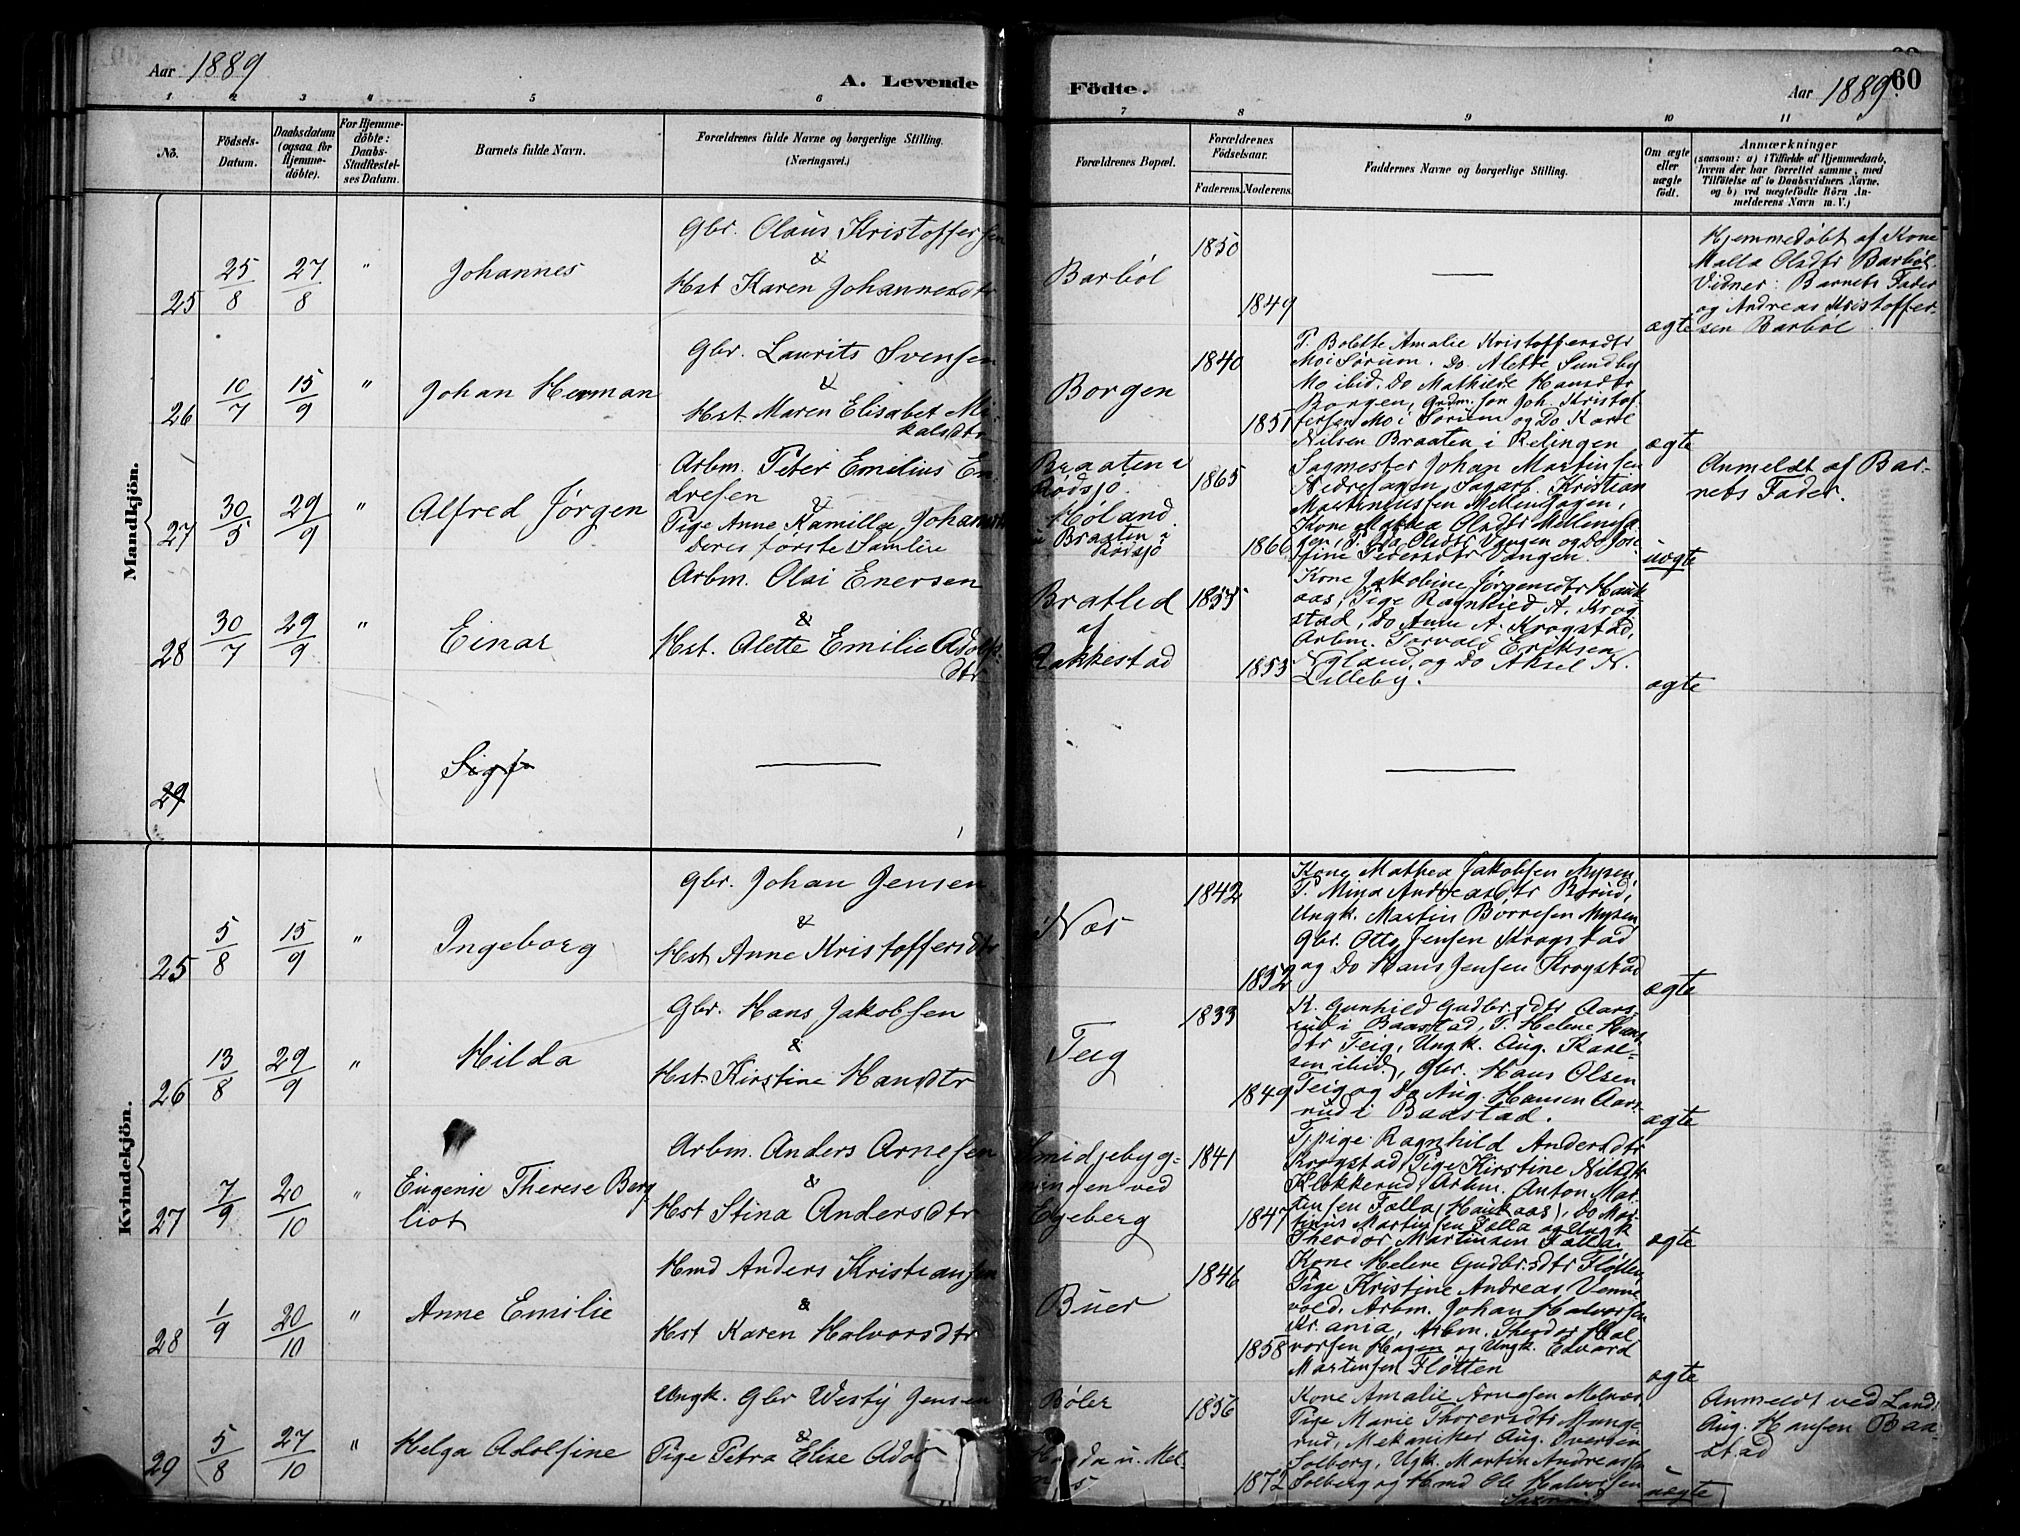 Aar 1889
A. Levende Födte.
Aar 1889.
60
1 2 3 4 5 6 7 8 9 10 11
No.
Födsels-Datum.
Daabsdatum (ogsaa for Hjemme-döbte).
For Hjemme-döbte: Daabs-Stadfæstel-ses Datum.
Barnets fulde Navn.
Forældrenes fulde Navne og borgerlige Stilling.
(Næringsvei.)
Forældrenes Bopæl.
Forældrenes Födselsaar.
Faderens. Moderens.
Faddernes Navne og borgerlige Stilling.
Om ægte eller uægte födt.
Anmærkninger
(saasom: a) i Tilfælde af Hjemmedaab,
hvem der har forrettet samme, med
Tilföielse af to Daabsvidners Navne,
og b) ved uægtefödte Börn An-
melderens Navn m. V.)
Mandkjön.
25 25/8 27/8 "
Johannes
Gbr. Olaus Kristoffersen
&
Hst Karen Johannesdtr
Barbøl
1850
1849
—
ægte
Hjemmedøbt af Kone
Malla Olsdtr Barbøl.
Vidner: Barnets Fader
og Andreas Kristoffer-
sen Barbøl.
26 10/7 15/9 "
Johan Herman
Gbr. Laurits Svensen
&
Hst. Maren Elisabet Mi-
kalsdtr
Borgen
1840
1851
P. Bolette Amalie Kristoffersdtr
Mo i Sørum. Do Alette Sundby
Mo ibid. Do Mathilde Hansdtr
Borgen, Grdm. søn Joh. Kristof-
fersen Mo i Sørum og Do Karl
Nilsen Braaten i Relingen
ægte
27 30/5 29/9 "
Alfred Jørgen
Arbm. Peter Emilius En-
dresen
&
Pige Anne Kamilla
Deres første Samleie
Braaten i
Rødsjø
Høland.
Braaten i
Rødsjø
1865
1866
Sagmester Johan Martinsen
Nedresagen, Sagarb. Kristian
Martinussen Mellemsagen,
Kone Mathea Olsdtr Mellemsa-
gen, P. Olsdtr Vangen og Do Jose-
fine Pedersdtr Vangen.
uægte
Anmeldt af Bar-
nets Fader.
28 30/7 29/9 "
Einar
Arbm. Olai Enersen
&
Hst. Alette Emilie Adolf
dtr
Bratlid
af
Rakkestad
1855
1853
Kone Jakobine Jørgensdtr Hauk-
aas, Pige Ragnhild A. Krog-
stad, Do Anne A. Krogstad,
Arbm. Torvald Eriksen
Nyland, og Do Aksel N.
Lilleby.
ægte
29
Sigf
—
—
Kvindekjön.
25 5/8 15/9 "
Ingeborg
Gbr. Johan Jensen
&
Hst Anne Kristoffersdtr
Næs
1842
1852
Kone Mathea Jakobsen Mysen,
P. Mina Andreasdtr Børud,
Ungk. Martin Børresen Mysen
Gbr. Otto Jensen Krogstad
og Do Hans Jensen Krogstad
ægte
26 13/8 29/9 "
Hilda
Gbr. Hans Jakobsen
&
Hst. Kirstine Hansdtr
Teig
1833
1849
K. Gunhild Gudbr.sdtr Aars-
rud i Baastad, P. Helene Hans
dtr Teig, Ungk. Aug. Karl-
sen ibid., Gbr. Hans Olsen
Teig og Do Aug. Hansen Aars-
rud i Baastad.
ægte
27 7/9 20/10 "
Eugenie Therese Berg
liot
Arbm. Anders Arnesen
&
Hst Stina Andersdtr
Smidjebyg-
ningen ved
Hgeberg
1841
1847
Tjpige Ragnhild Andersdtr
Krogstad, Pige Kirstine Nilsdtr
Klokkerud, Arbm. Anton Mar-
tinsen Falla (Haukaas), Do Mar-
tinus Martinsen Falla og Ungk
Theodor Martinsen Falla.
ægte
28 1/9 20/10 "
Anne Emilie
Hmd Anders Kristiansen
&
Hst Karen Halvorsdtr
Buer
1846
1858
Kone Helene Gudbr.sdtr Fløtten,
Pige Kristine Andreas. Venne-
vold. Arbm. Johan Halvorsen
Kr.ania, Arbm. Theodor Hal-
vorsen Hagen og Ungk. Edvard
Martinsen Fløtten
ægte
29 5/8 27/10 "
Helga Adolfine
Ungk. Gbr Westy Jensen
&
Pige Petra Elise Adol
Bøler
u. Mel-
1856
1872
Kone Amalie Arnesen Melnæs
Pige Marie Thoresdtr Mange-
rud, Mekaniker Aug. Iversen
Solberg, Ugk. Martin Andreassen
Solberg og Hmd Ole Halvorsen
uægte
Anmeldt ved Land.
Aug. Hansen Baa-
stad